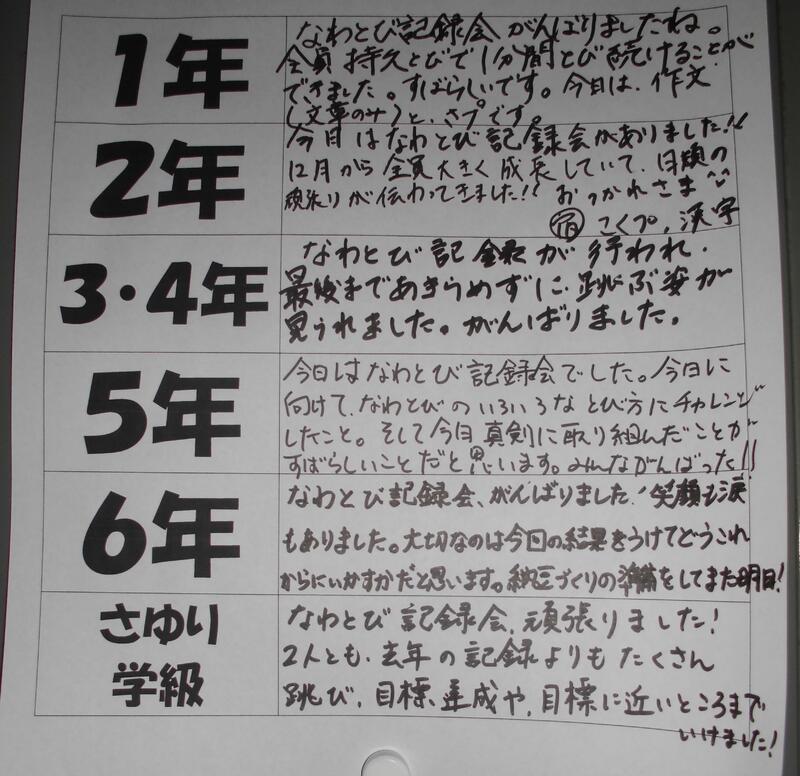 1年
なわとび記録会がんばりましたね。
全員持久とびで1分間とび続けることが
できました。すばらしいです。今日は、作文
(文章のみ)と、さプです。
2年
今日はなわとび記録会がありました!!
12月から全員大きく成長していて、日頃の
頑張りが伝わってきました!! おつかれさま
宿 こくプ,漢字
3・4年
なわとび記録が行われ、
最後まであきらめずに、跳ぶ姿が
見られました。がんばりました。
5年
今日はなわとび記録会でした。今日に
向けて、なわとびのいろいろなとび方にチャレンジ
したこと。そして今日真剣に取り組んだことが
すばらしいことだと思います。みんながんばった!!
6年
なわとび記録会、がんばりました!笑顔も涙
もありました。大切なのは今回の結果をうけてどうこれ
からにいかすかだと思います。納豆づくりの準備をしてまた明日!
さゆり
学級
なわとび記録会、頑張りました!
2人とも、去年の記録よりもたくさん
跳び、目標、達成や、目標に近いところまで
いけました!